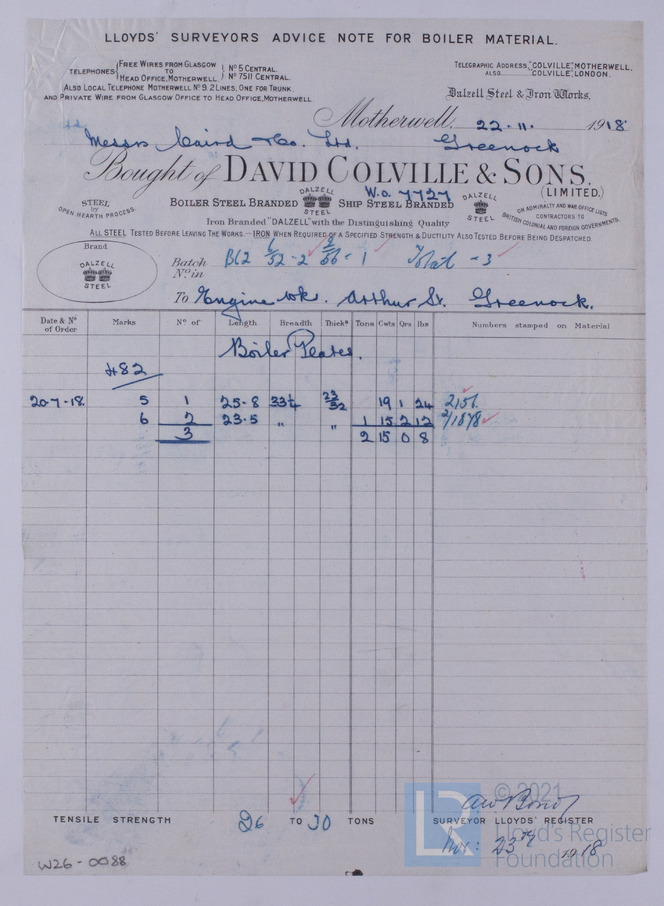 LLOYDS' SURVEYORS ADVICE NOTE FOR BOILER MATERIAL.
TELEPHONES { FREE WIRES FROM GLASGOW TO HEAD OFFICE, MOTHERWELL. } Nº 5 CENTRAL. Nº 7511 CENTRAL.
ALSO LOCAL TELEPHONE MOTHERWELL Nº 9. 2 LINES, ONE FOR TRUNK
AND PRIVATE WIRE FROM GLASGOW OFFICE TO HEAD OFFICE, MOTHERWELL
TELEGRAPHIC ADDRESS, "COLVILLE", MOTHERWELL.
ALSO "COLVILLE", LONDON.
Dalzell Steel & Iron Works,
Motherwell, 22·11· 1918·
Messrs Caird & Co. Ltd. Greenock
Bought of DAVID COLVILLE & SONS, (LIMITED.)
W.O. 7727
STEEL by OPEN HEARTH PROCESS.
BOILER STEEL BRANDED DALZELL STEEL SHIP STEEL BRANDED DALZELL STEEL
ON ADMIRALTY AND WAR OFFICE LISTS
CONTRACTORS TO
BRITISH COLONIAL AND FOREIGN GOVERNMENTS.
Iron Branded "DALZELL" with the Distinguishing Quality
ALL STEEL TESTED BEFORE LEAVING THE WORKS. — IRON WHEN REQUIRED OF A SPECIFIED STRENGTH & DUCTILITY ALSO TESTED BEFORE BEING DESPATCHED.
Brand
DALZELL STEEL
Batch Nº in Total - 3
To Engine Wks. Arthur St. Greenock.
Date & Nº of Order Marks Nº of Length Breadth Thickˢ Tons Cwts Qrs lbs Numbers stamped on Material
Boiler Plates.
482
20·7·18. 5 1 25-8 33¼ 23/32 19 1 24 2151
6 2 23·5 " " 1 15 2 12 2/1878
3 2 15 0 8
TENSILE STRENGTH 26 TO 30 TONS SURVEYOR LLOYD'S REGISTER
AW Bond
Nov: 23rd 1918
W26-0088
LR
© 2021
Lloyd's Register
Foundation